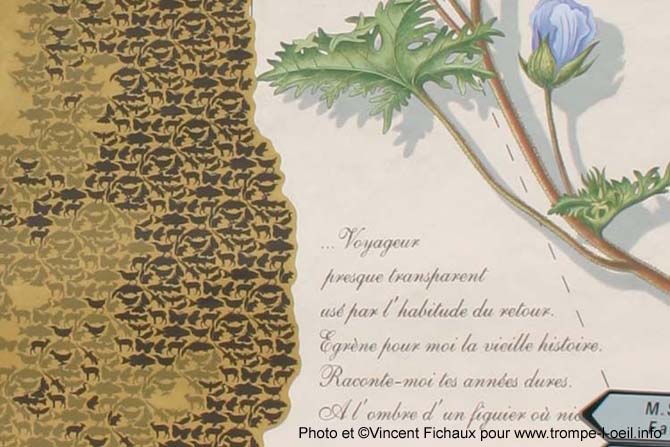 ...Voyageur
presque transparent
usé par l'habitude du retour.
Egrène pour moi la vieille histoire.
Raconte-moi tes années dures.
A l'ombre d'un figuier où
M.
Photo et ©Vincent Fichaux pour www.trompe-l-oeil.info